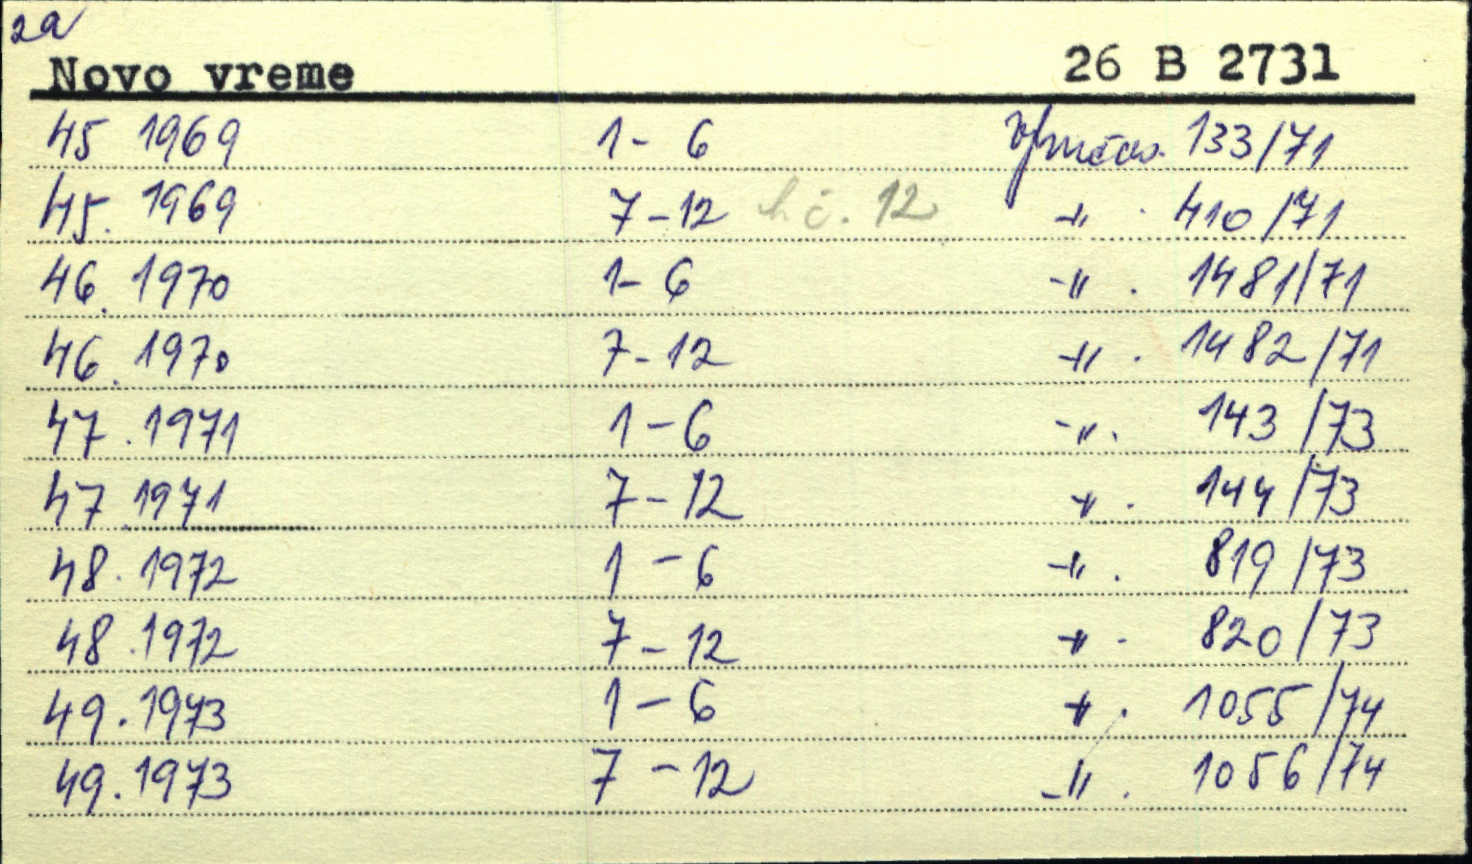 2a
Novo vreme 26 B 2731
45 1969 1 - 6 133/71
45. 1969 7 - 12 č. 12 -"- 410/71
46. 1970 1 - 6 -"- 1481/71
46. 1970 7 - 12 -"- 1482/71
47. 1971 1 - 6 -"- 143/73
47 1971 7 - 12 -"- 144/73
48. 1972 1 - 6 -"- 819/73
48. 1972 7 - 12 -"- 820/73
49. 1973 1 - 6 -"- 1055/74
49. 1973 7 - 12 -"- 1056/74